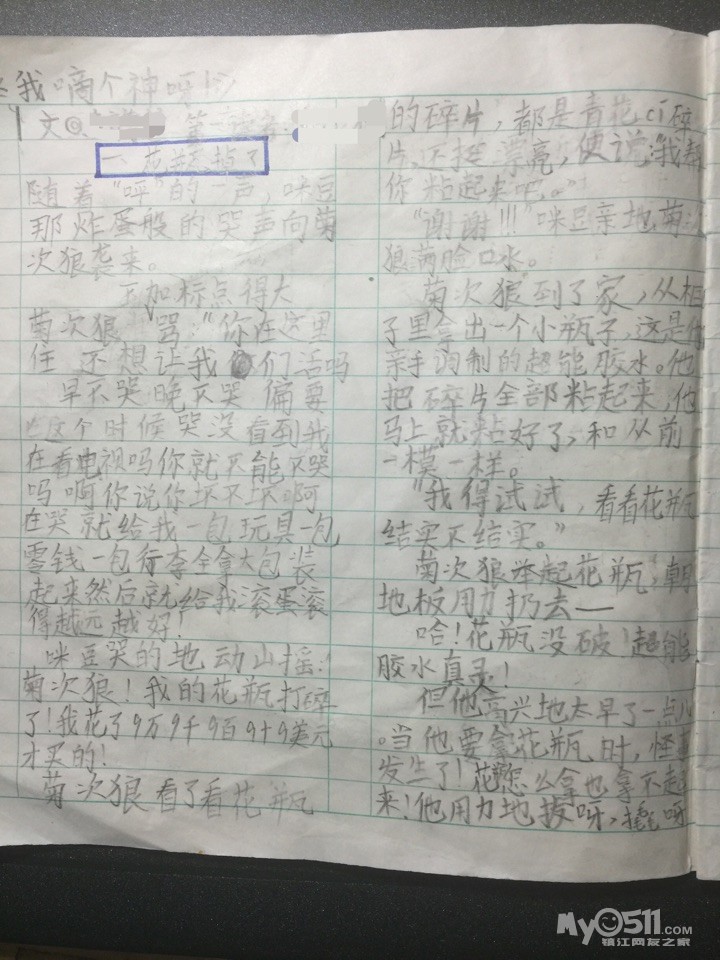 我嘀个神呀!
文◎ 第一读者:
一、花瓶掉了
随着“呯”的一声,咪豆
那炸蛋般的哭声向菊
次狼袭来。
加标点得大
菊次狼 骂:“你在这里
住 还想让我们活吗
早不哭晚不哭 偏要
这个时候哭没看到我
在看电视吗你就不能不哭
吗啊你说你坏不坏啊
在哭就给我一包玩具一包
零钱一包行李全拿大包装
起来然后就给我滚蛋滚
得越远越好!
咪豆哭的地动山摇:
菊次狼!我的花瓶打碎
了!我花了9万9千9百9十9美元
才买的!
菊次狼看了看花瓶
的碎片,都是青花ci碎
片,还挺漂亮,便说:“我帮
你粘起来吧。”
“谢谢!!!”咪豆亲地菊次
狼满脸口水。
菊次狼到了家,从柜
子里拿出一个小瓶子,这是他
亲手调制的超能胶水。他
把碎片全部粘起来,他
马上就粘好了,和从前
一模一样。
“我得试试,看看花瓶
结实不结实。”
菊次狼举起花瓶,朝
地板用力扔去——
哈!花瓶没破!超能
胶水真灵!
但他高兴地太早了一点儿
。当他要拿花瓶时,怪事
发生了!花瓶怎么拿也拿不起
来!他用力地拔呀,撬呀
My0511.com
镇江网友之家